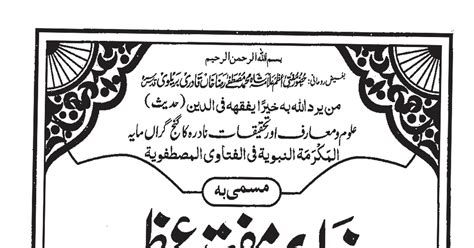 بسم اللہ الرحمن الرحیم
بفیض روحانی: حضور مفتی اعظم علامہ شاہ محمد مصطفیٰ رضا خاں قادری بریلوی قدس سرہ
من یرد اللہ بہ خیرا یفقهہ فی الدین (حدیث)
علوم و معارف اور تحقیقات نادرہ کا گنج گراں مایہ
المکرمة النبویة فی الفتاوی المصطفویة
مسمی بہ
مفتی